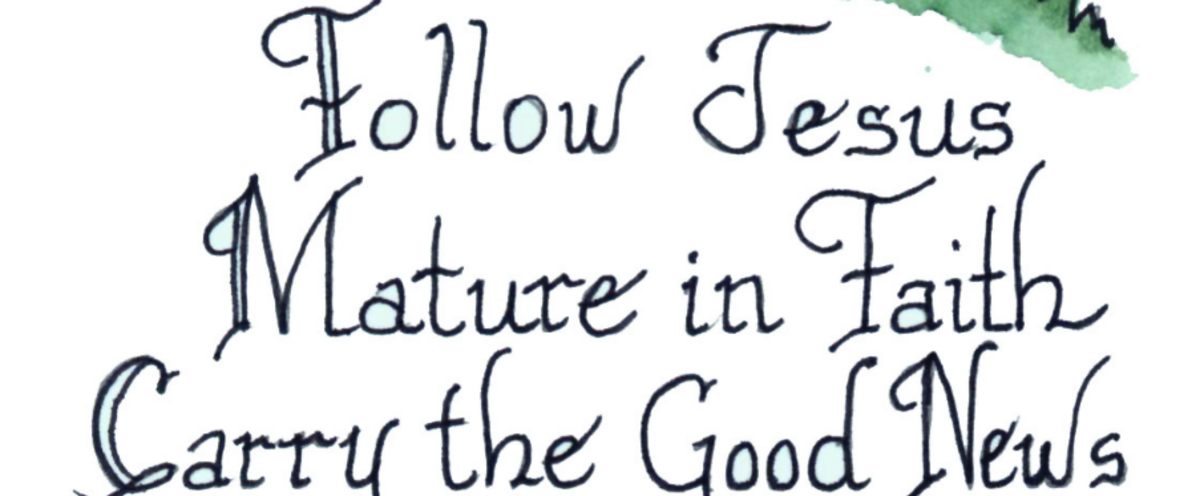 Follow Jesus
Mature in Faith
Carry the Good News